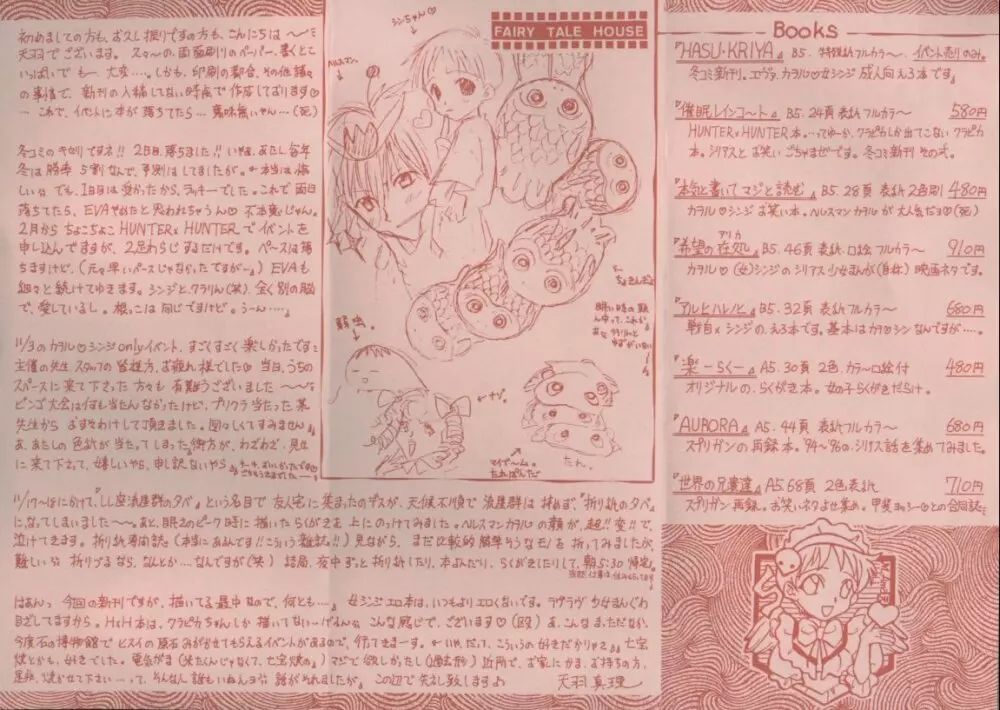 初めましての方も、お久し振りですの方も、こんにちは〜〜
天羽でございます。スゲ〜の、両面刷りのペーパー。書くとこ
いっぱいでも〜大変…。しかも、印刷の都合、その他諸々
の事情で、新刊の入稿してない時点で作成しております♡
… これで、イベントに本が落ちてたら… 意味無いやん…(死)
冬コミのキセツですネ!! 2日目、落ちました!! いやぁ、あたし毎年
冬は勝率5割なんで、予測はしてましたが。←本当は悔し
いッ でも、1日目は受かったから、ラッキーでした。これで両日
落ちてたら、EVAやめたと思われちゃうん♡ 不本意じゃん。
2月からちょこちょこHUNTER×HUNTERでイベントを
申し込んでますが、2足わらじするだけです。ペースは落
ちますけど、(元々早いペースじゃなかったですが…) EVAも
細々と続けてゆきます。シンジとクラリん(笑) 全く別の脳
で、愛しているし。根っこは同じですけど。うーん…。
11/3のカヲル♡シンジonlyイベント、すごくすごく楽しかったです
主催の先生、スタッフの皆様方、お疲れ様でした♡ 当日、うちの
スペースに来て下さった方々も 有難うございました〜〜
ビンゴ大会は何も当たんなかったけど、プリクラ当たった某
先生から おすそわけして頂きました。図々しくてすみません
あ、あたしの色紙が当たってしまった御方が、わざわざ、見せ
に来て下さって、嬉しいやら、申し訳ないやら
11/17〜18にかけて、"しし座流星群の夕べ"という名目で 友人宅に集まったのデスが、天候不順で 流星群は拝めず"折り紙の夕べ"
になってしまいました〜〜。あと、眠さのピーク時に描いたらくがきを 上にのっけてみました。ヘルスマンカヲルの顔が、超!!変!!で、
泣けてきます。折り紙専門誌(本当にあるんです!! こういう雑誌!!) 見ながら、まだ比較的簡単そうなモノを 折ってみましたが、
難しいッ 折りづるなら、なんとか…なんですが(笑) 結局、夜中ずっと折り紙したり、本よんだり、らくがきしたりして、朝5:30 帰宅。
はあんっ 今回の新刊ですが、描いてる最中なので、何とも…。女シンジエロ本は、いつもよりエロくないです。ラブラヴ少女まんぐわ
目ざしてますから。H×H本は、クラピカちゃんしか描いてない
こんな感じで、ございます♡(殴) あ、こんな、まっただなか、
今度石の博物館で ヒスイの原石みがかせてもらえるイベントがあるので、行ってきまーす。←いや、だって、こういうの好きだからサぁ 七宝
焼とかも、好きでした。電気がま(米たくんじゃなくて、七宝焼の) マジで欲しかったし(過去形) 近所で、お家にかま、お持ちの方、
是非、焼かせて下さい…って、そんなん誰もいねんヨッ 話がそれましたが、この辺で失礼致します♪ 天羽真理
FAIRY TALE HOUSE
シンちゃん♡
ヘルスマン。
弱虫。
←ナゾ。
マイブーム。
たれぱんだ
たれ。
Books
『HASU・KRIYA』 B5. 特殊紙フルカラ〜 イベント売りのみ。
冬コミ新刊。エヴァ、カヲル♡女シンジ 成人向えろ本です。
『催眠レインコート』 B5. 24頁 表紙フルカラ〜 580円
HUNTER×HUNTER本。…ってゆーか、クラピカしか出てこないクラピカ
本。シリアスとお笑いごちゃまぜです。冬コミ新刊その弐。
『本気と書いてマジと読む』 B5. 28頁 表紙2色刷り 480円
カヲル♡シンジお笑い本。ヘルスマンカヲルが大人気だヨ♡(死)
『希望の在処』アリカ B5. 46頁 表紙・口絵フルカラ〜 910円
カヲル♡(女)シンジのシリアス少女まんが(自虐) 映画ネタです。
『アルヒハレノヒ』 B5. 32頁 表紙フルカラ〜 680円
戦自×シンジの、えろ本です。基本はカヲ♡シンなんですが…。
『楽 −らく−』 A5. 30頁 2色、カラー口絵付 480円
オリジナルの、らくがき本。女の子らくがきだらけ。
『AURORA』 A5. 44頁 表紙フルカラ〜 680円
スプリガンの再録本。94〜96のシリアス話を集めてみました。
『世界の兄貴達』 A5 68頁 2色表紙 710円
スプリガン再録。お笑いネタよせ集め。甲斐チャミーとの合同誌